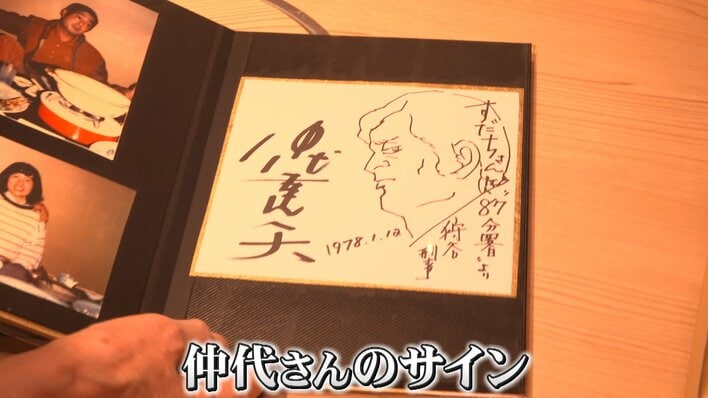 すだちさん
87分署より
狩谷
刑事
1978.1.12
仲代達矢
仲代さんのサイン